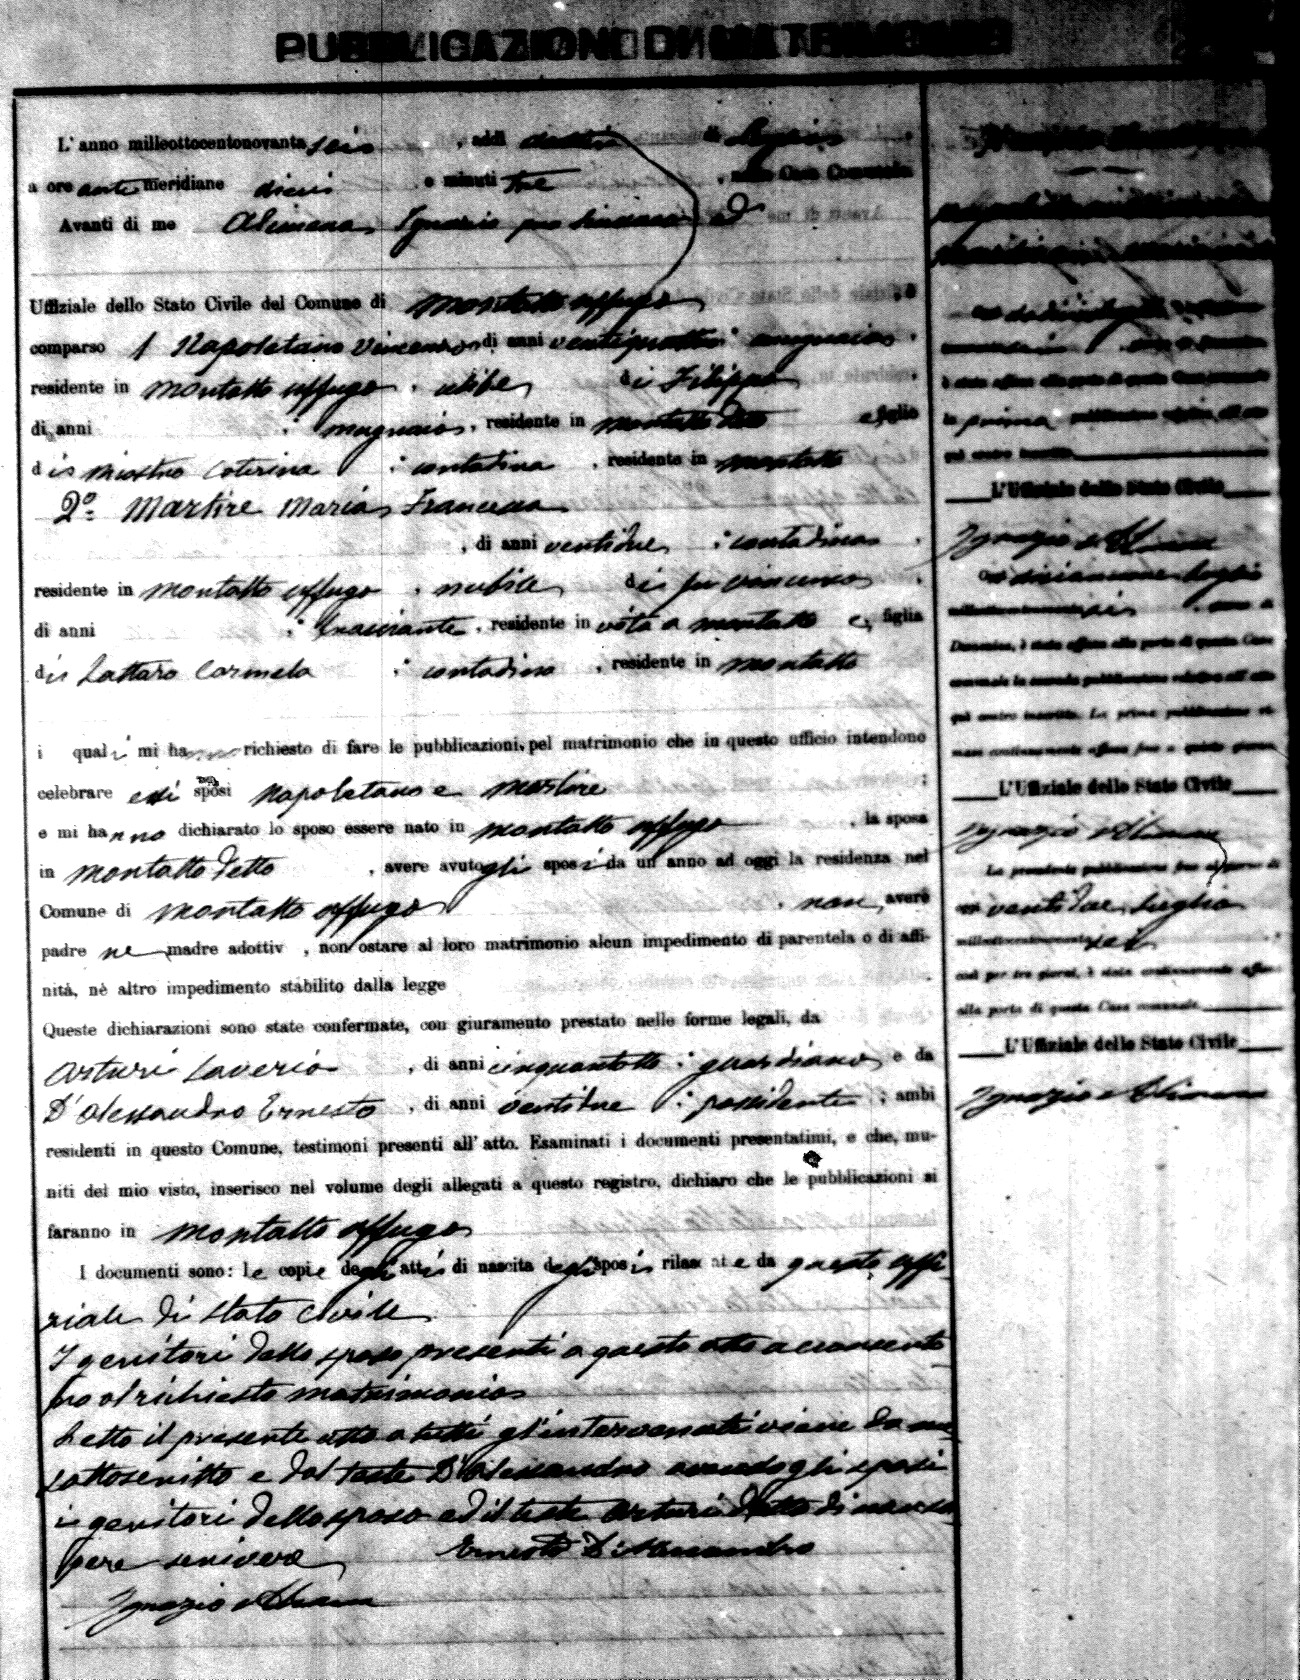 PUBBLICAZIONE DI MATRIMONIO
L'anno milleottocentonovanta seis, addì di Luglio
a ore ante meridiane dieci e minuti tre, nella Casa Comunale
Avanti di me Alimena Ignazio pro Sindaco ed
Uffiziale dello Stato Civile del Comune di Montalto Uffugo
comparso 1 Napoletano Vincenzo di anni ventiquattro; mugnaio
residente in Montalto Uffugo, celibe di Filippo
di anni ; mugnaio, residente in Montalto detto e figlio
di Caterina ; contadina, residente in Montalto
2º Martire Maria Francesca
, di anni ventidue ; contadina
residente in Montalto Uffugo, nubile di fu Vincenzo
di anni ; , residente in vita a Montalto e figlia
di Lattaro Carmela ; contadina, residente in Montalto
i quali mi hanno richiesto di fare le pubblicazioni pel matrimonio che in questo ufficio intendono
celebrare essi sposi Napoletano e Martire
e mi hanno dichiarato lo sposo essere nato in Montalto Uffugo, la sposa
in Montalto detto, avere avuto gli sposi da un anno ad oggi la residenza nel
Comune di Montalto Uffugo, non avere
padre ne madre adottiv , non ostare al loro matrimonio alcun impedimento di parentela o di affi-
nità, nè altro impedimento stabilito dalla legge
Queste dichiarazioni sono state confermate, con giuramento prestato nelle forme legali, da
Arturi Saverio, di anni cinquantotto; guardiano e da
D'Alessandro Ernesto, di anni ventidue; possidente; ambi
residenti in questo Comune, testimoni presenti all'atto. Esaminati i documenti presentatimi, e che, mu-
niti del mio visto, inserisco nel volume degli allegati a questo registro, dichiaro che le pubblicazioni si
faranno in Montalto Uffugo
I documenti sono: le copie degli atti di nascita degli sposi rilasciate da questo uffi
ziale di Stato Civile
I genitori dello sposo presenti a questo atto acconsento
no al richiesto matrimonio
Letto il presente atto a tutti gl'intervenuti viene da me
sottoscritto e dal teste D'Alessandro avendo gli sposi
i genitori dello sposo ed il teste Arturi detto di non sa
pere scrivere Ernesto D'Alessandro
Ignazio Alimena
è stata affissa alla porta di questa Casa comunale
la prima pubblicazione relativa all'atto
qui contro inscritto
L'Uffiziale dello Stato Civile
Ignazio Alimena
Oggi diciannove luglio
milleottocentonovantasei
Domenica, è stata affissa alla porta di questa Casa
comunale la seconda pubblicazione relativa all'atto
qui contro inscritto. La prima pubblicazione ri-
mase continuamente affissa fino a questo giorno
L'Uffiziale dello Stato Civile
Ignazio Alimena
La presente pubblicazione fino al giorno di
oggi ventidue luglio
milleottocentonovantasei
cioè per tre giorni, è stata continuamente affissa
alla porta di questa Casa comunale
L'Uffiziale dello Stato Civile
Ignazio Alimena